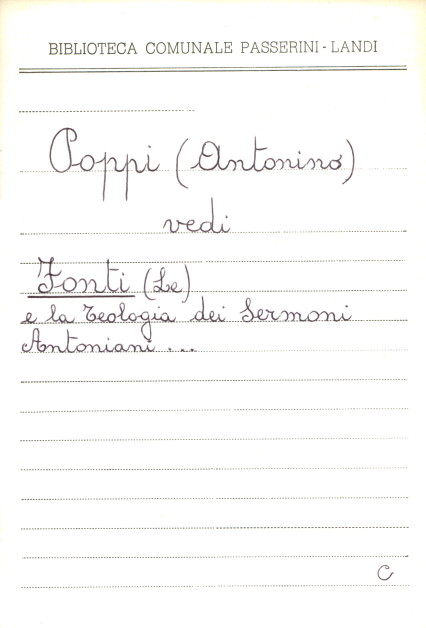 BIBLIOTECA COMUNALE PASSERINI - LANDI
Poppi (Antonino)
vedi
Fonti (Le)
e la Teologia dei Sermoni
Antoniani ...
C